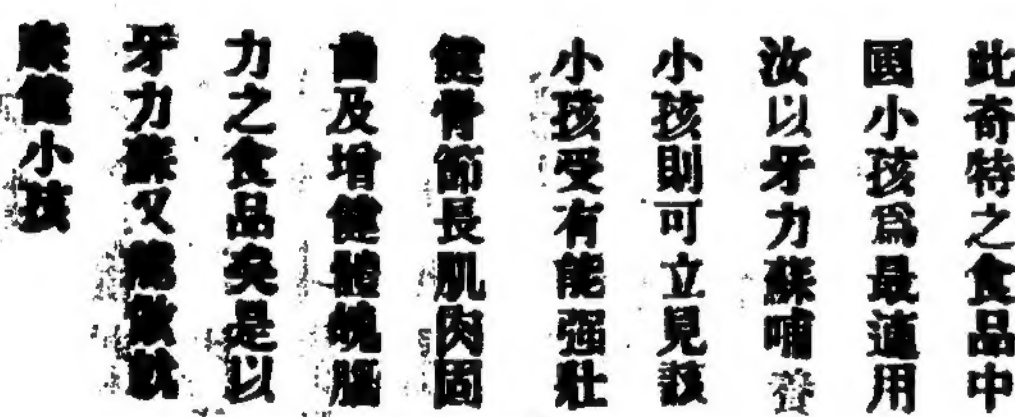 此奇特之食品中
國小孩爲最適用
汝以牙力蘇哺養
小孩則可立見該
小孩受有能强壯
健骨節長肌肉固
齒及增健體魄腦
力之食品矣是以
牙力蘇又稱
康健小孩